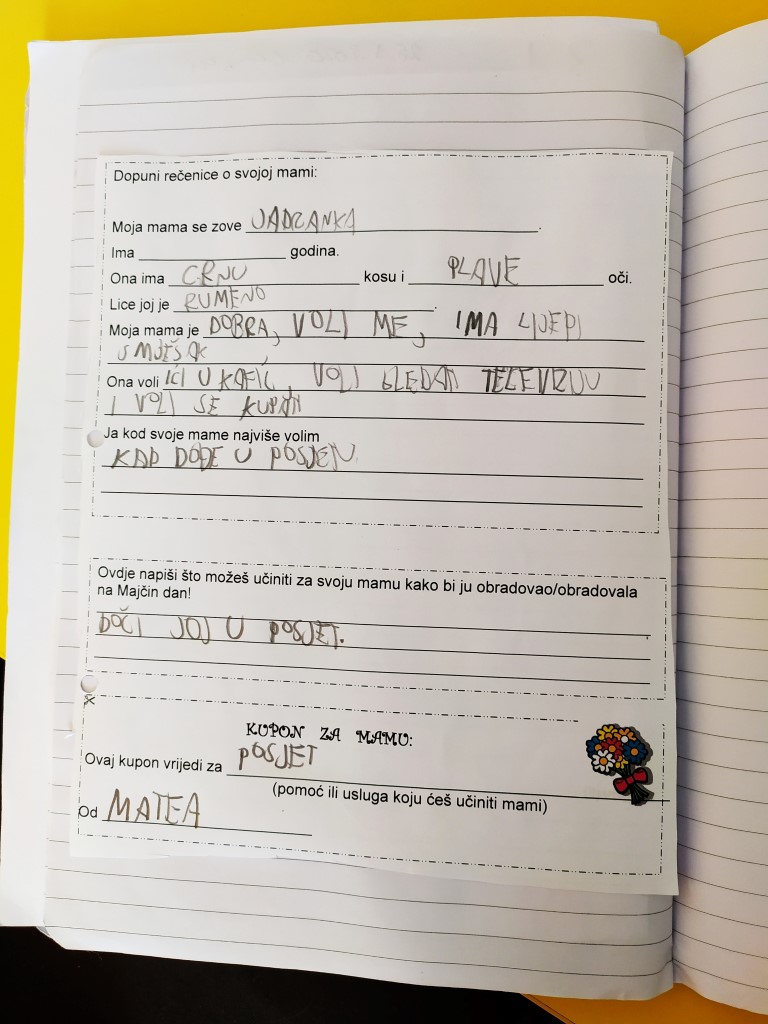 Dopuni rečenice o svojoj mami:
Moja mama se zove JADRANKA.
Ima ____ godina.
Ona ima CRNU kosu i PLAVE oči.
Lice joj je RUMENO.
Moja mama je DOBRA, VOLI ME, IMA LIJEPI
SMJEŠAK
Ona voli IĆI U KAFIĆ, VOLI GLEDATI TELEVIZIJU
I VOLI SE KUPATI
Ja kod svoje mame najviše volim
KAD DOĐE U POSJET.
Ovdje napiši što možeš učiniti za svoju mamu kako bi ju obradovao/obradovala
na Majčin dan!
DOĆI JOJ U POSJET.
KUPON ZA MAMU:
Ovaj kupon vrijedi za POSJET
(pomoć ili usluga koju ćeš učiniti mami)
Od MATEA